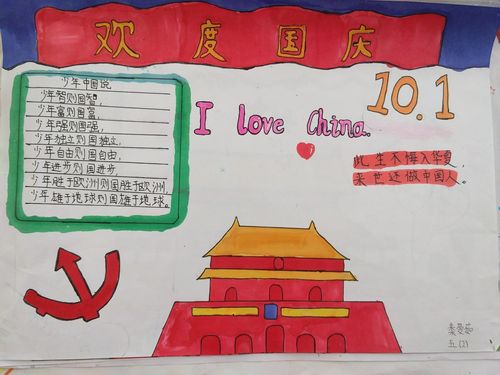 欢度国庆
10.1
I love China.
少年中国说
少年智则国智,
少年富则国富,
少年强则国强,
少年独立则国独立,
少年自由则国自由,
少年进步则国进步,
少年胜于欧洲则国胜于欧洲,
少年雄于地球则国雄于地球。
此生不悔入华夏,
来世还做中国人。
五(2)